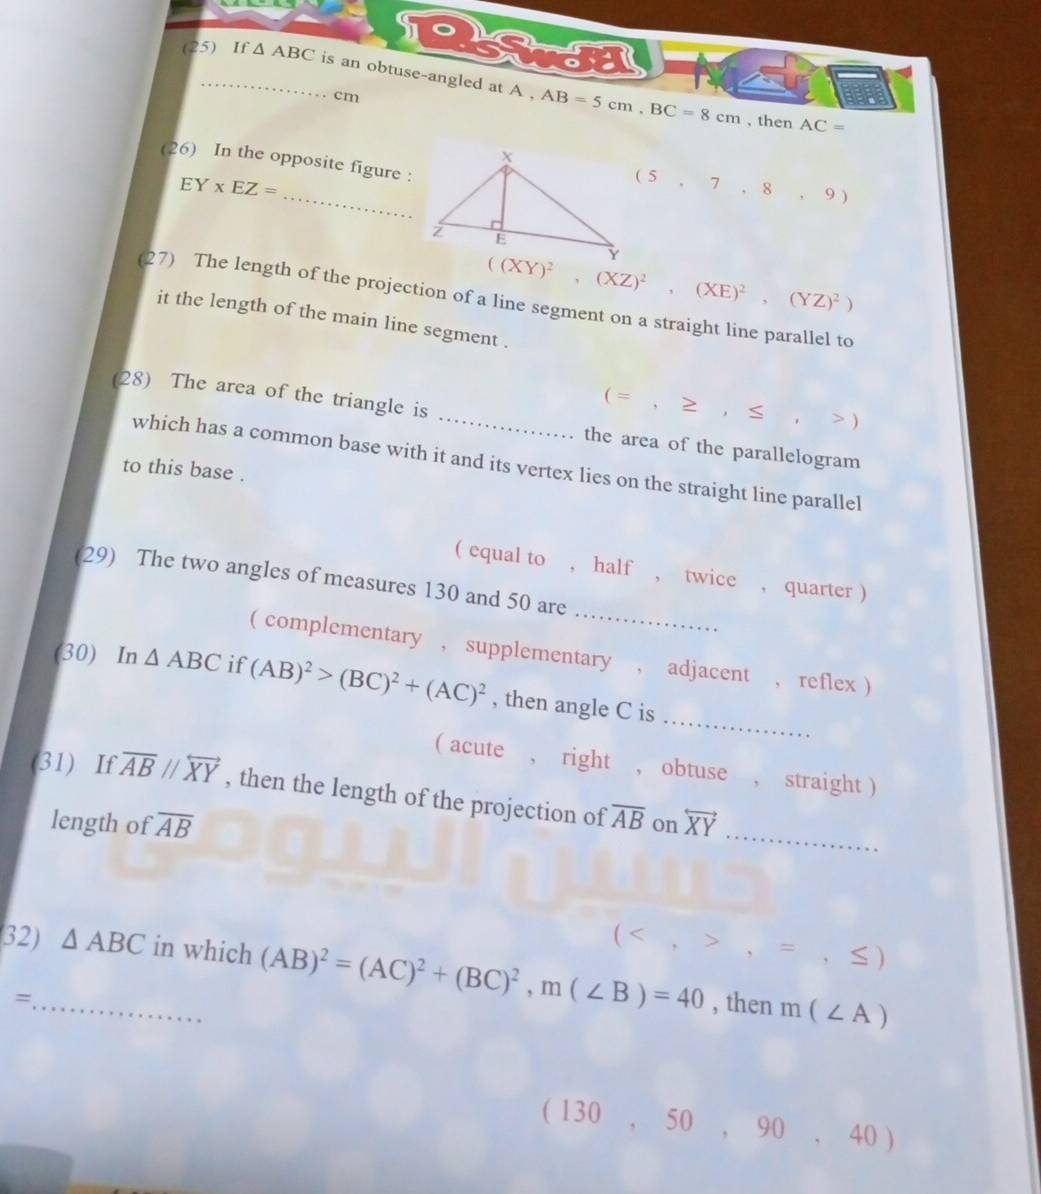 (25) If Δ ABC is an obtuse-angled at A , AB = 5 cm , BC = 8 cm , then AC =
.................. cm
( 5 , 7 , 8 , 9 )
(26) In the opposite figure :
EY x EZ = ..................
X
Z
E
Y
( (XY)² , (XZ)² , (XE)² , (YZ)² )
(27) The length of the projection of a line segment on a straight line parallel to
it the length of the main line segment .
( = , ≥ , ≤ , > )
(28) The area of the triangle is .................. the area of the parallelogram
which has a common base with it and its vertex lies on the straight line parallel
to this base .
( equal to , half , twice , quarter )
(29) The two angles of measures 130 and 50 are ..................
( complementary , supplementary , adjacent , reflex )
(30) In Δ ABC if (AB)² > (BC)² + (AC)² , then angle C is ..................
( acute , right , obtuse , straight )
(31) If AB // XY , then the length of the projection of AB on XY ..................
length of AB
( < , > , = , ≤ )
32) Δ ABC in which (AB)² = (AC)² + (BC)² , m ( ∠ B ) = 40 , then m ( ∠ A )
=..................
( 130 , 50 , 90 , 40 )
حسين البيومى